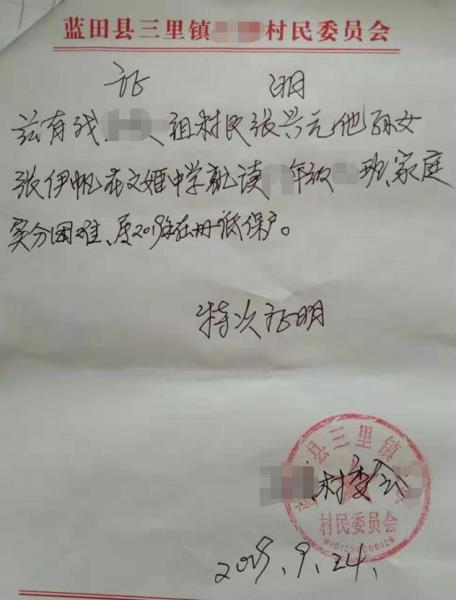 蓝田县三里镇 村民委员会
证 明
兹有我 组村民张兴元,他孙女
张伊帆在文姬中学就读 年级 班,家庭
实分困难、是2019年在册低保户。
特次证明
县三里镇
村委会
村民委员会
2019.9.24.